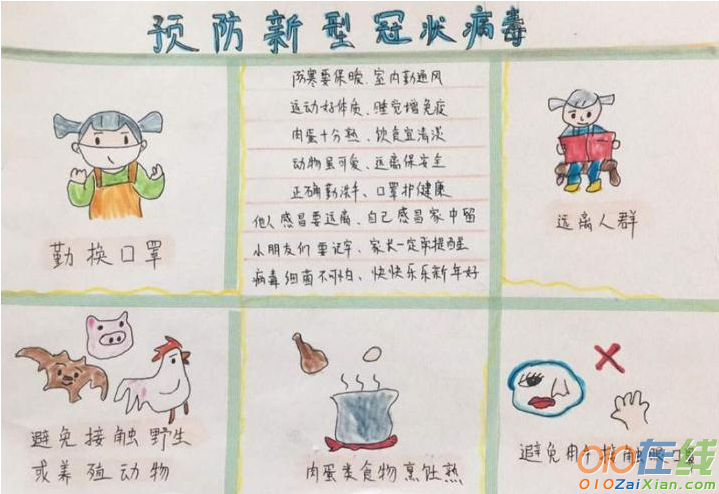 预防新型冠状病毒
防寒要保暖、室内勤通风
运动好体质、睡觉增免疫
肉蛋十分熟、饮食宜清淡
动物虽可爱、远离保安全
正确勤洗手、口罩护健康
他人感冒要远离、自己感冒家中留
小朋友们要记牢、家长一定来提醒
病毒细菌不可怕、快快乐乐新年好
勤换口罩
远离人群
避免接触野生
或养殖动物
肉蛋类食物烹饪熟
避免用手接触眼口鼻
010在线
010ZaiXian.com